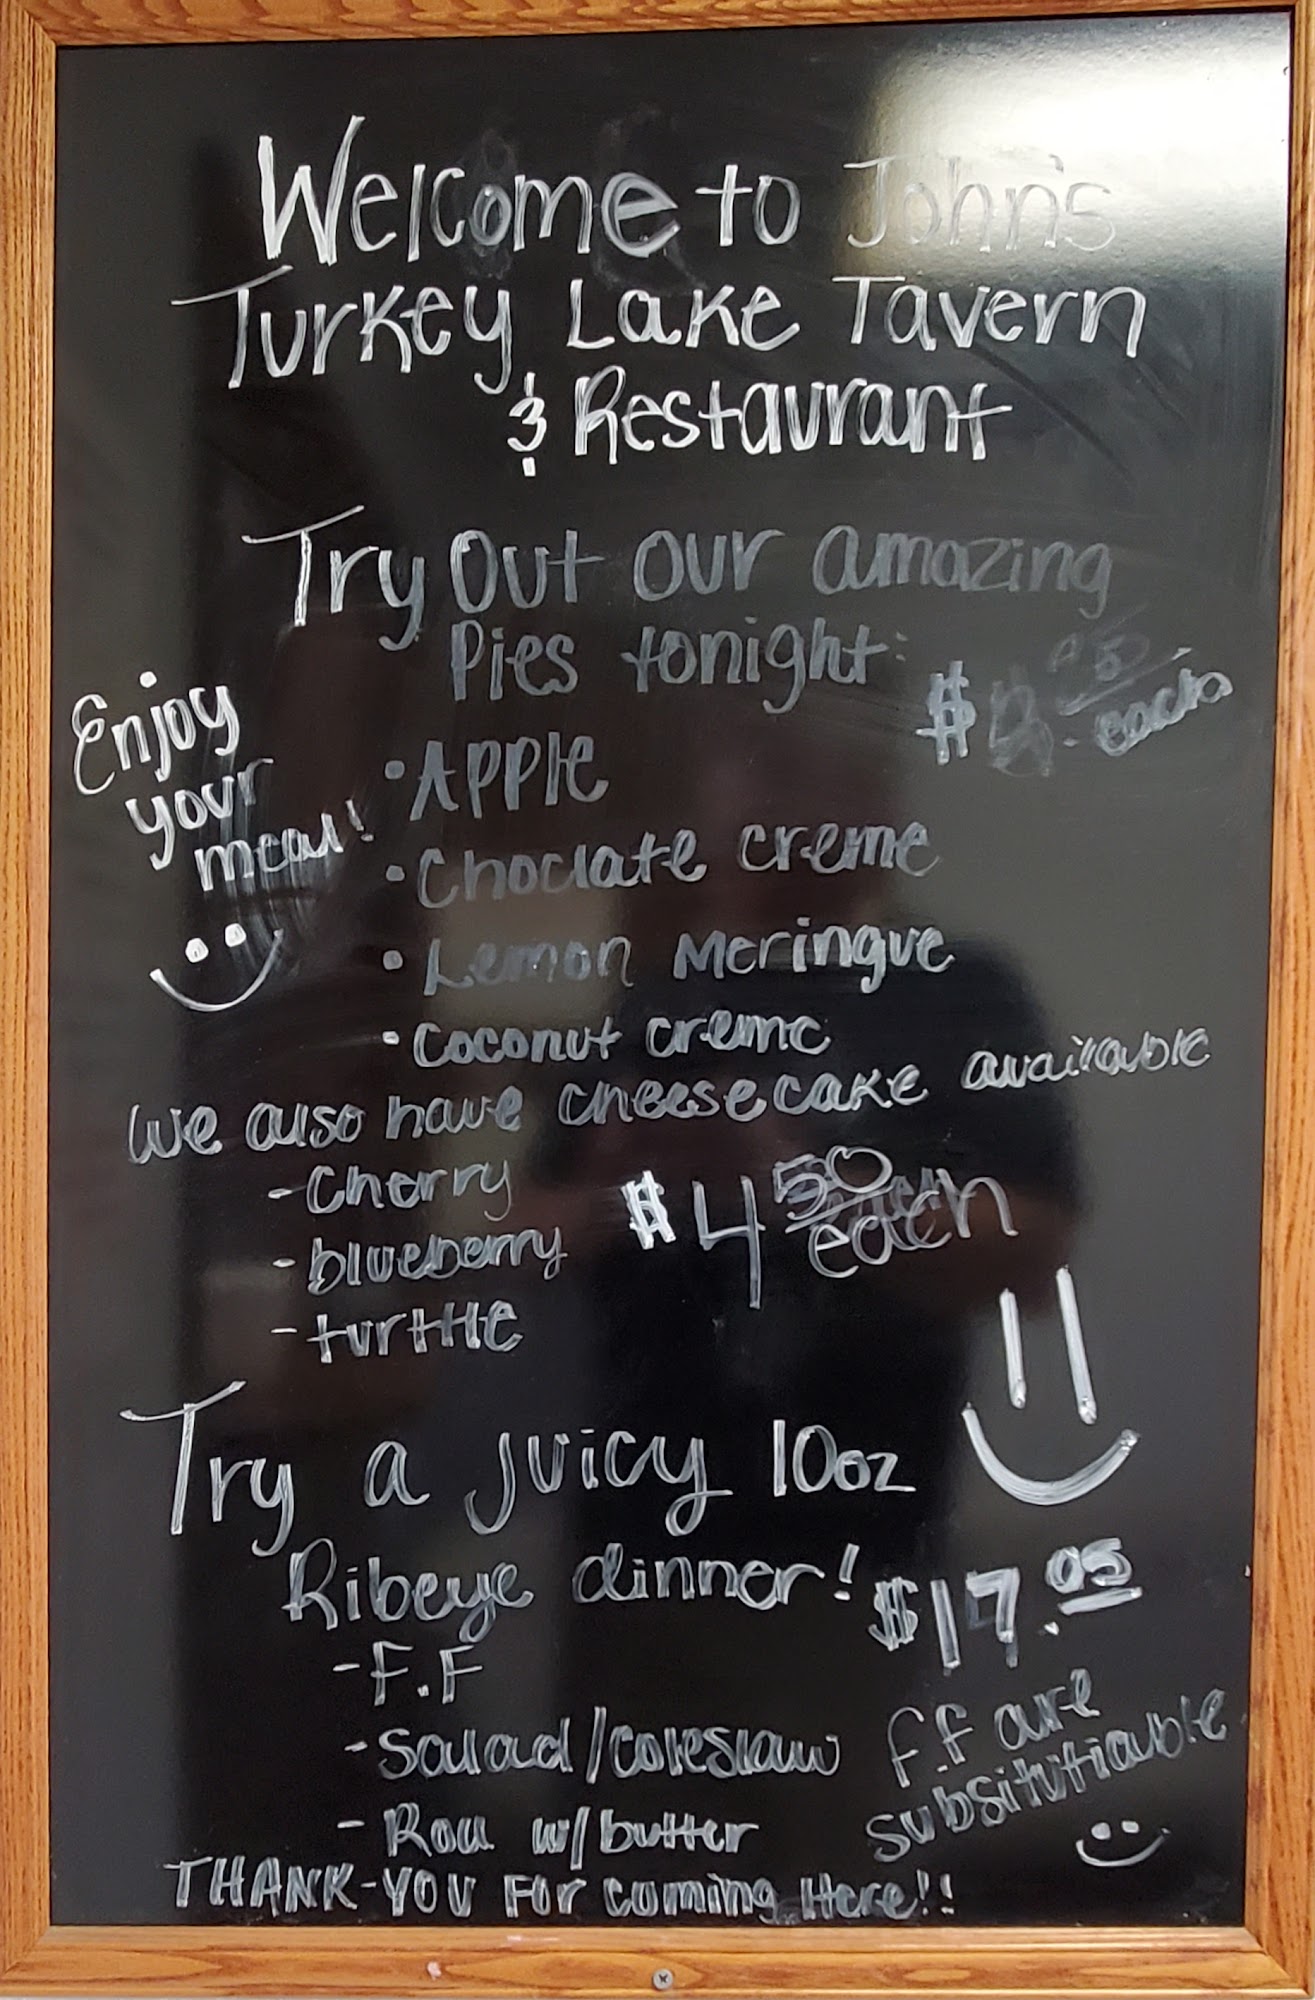 Welcome to John's
Turkey Lake Tavern
& Restaurant
Try Out our amazing
Pies tonight:
$ each
Enjoy
your
meal!
• Apple
• Choclate creme
• Lemon Meringue
• Coconut creme
We also have cheesecake available
- Cherry
- blueberry
- turttle
$4 50 each
Try a juicy 10oz
Ribeye dinner!
$17.05
- F.F
- Salad/coleslaw
- Roll w/butter
f.f are
subsitutiable
THANK-YOU For coming Here!!